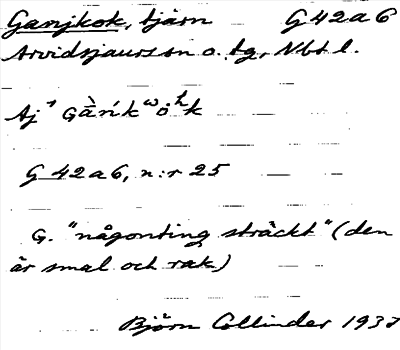 Ganjkok, tjärn G 42 a 6
Arvidsjaurs sn o. tg, Nbt l.
Aj
G 42 a 6, n:r 25
G. "någonting sträckt" (den
är smal och rak)
Björn Collinder